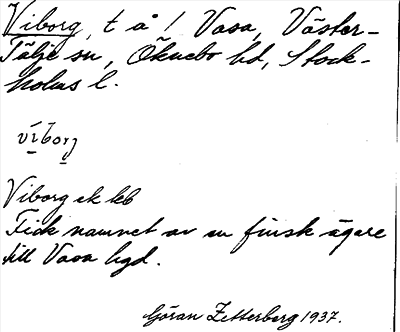 Viborg, t å / Vasa, Väster-
Tälje sn, Öknebo hd, Stock-
holms l.
víborj
Viborg ek kb
Fick namnet av en finsk ägare
till Vasa hgd.
Göran Zetterberg 1937.